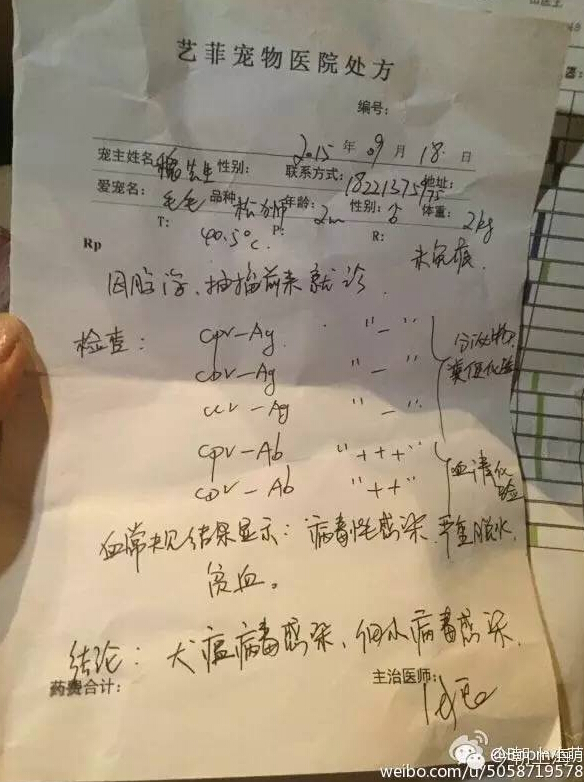 艺菲宠物医院处方
编号:
2015 年 09 月 18 日
宠主姓名: 先生 性别: 联系方式: 地址:
爱宠名: 毛毛 品种: 年龄: 2m 性别: 体重: 2kg
T: 40.5℃ P: R:
Rp 未免疫
因腹泻、抽搐前来就诊.
检查: cpv-Ag "-"
cDv-Ag "-"
ccv-Ag "-"
分泌物, 粪便化验
cpv-Ab "+++"
cDv-Ab "++"
血清化验
血常规结果显示: 病毒性感染 严重脱水,
贫血。
结论: 犬瘟病毒感染、细小病毒感染.
药费合计: 主治医师:
weibo.com/u/5058719578